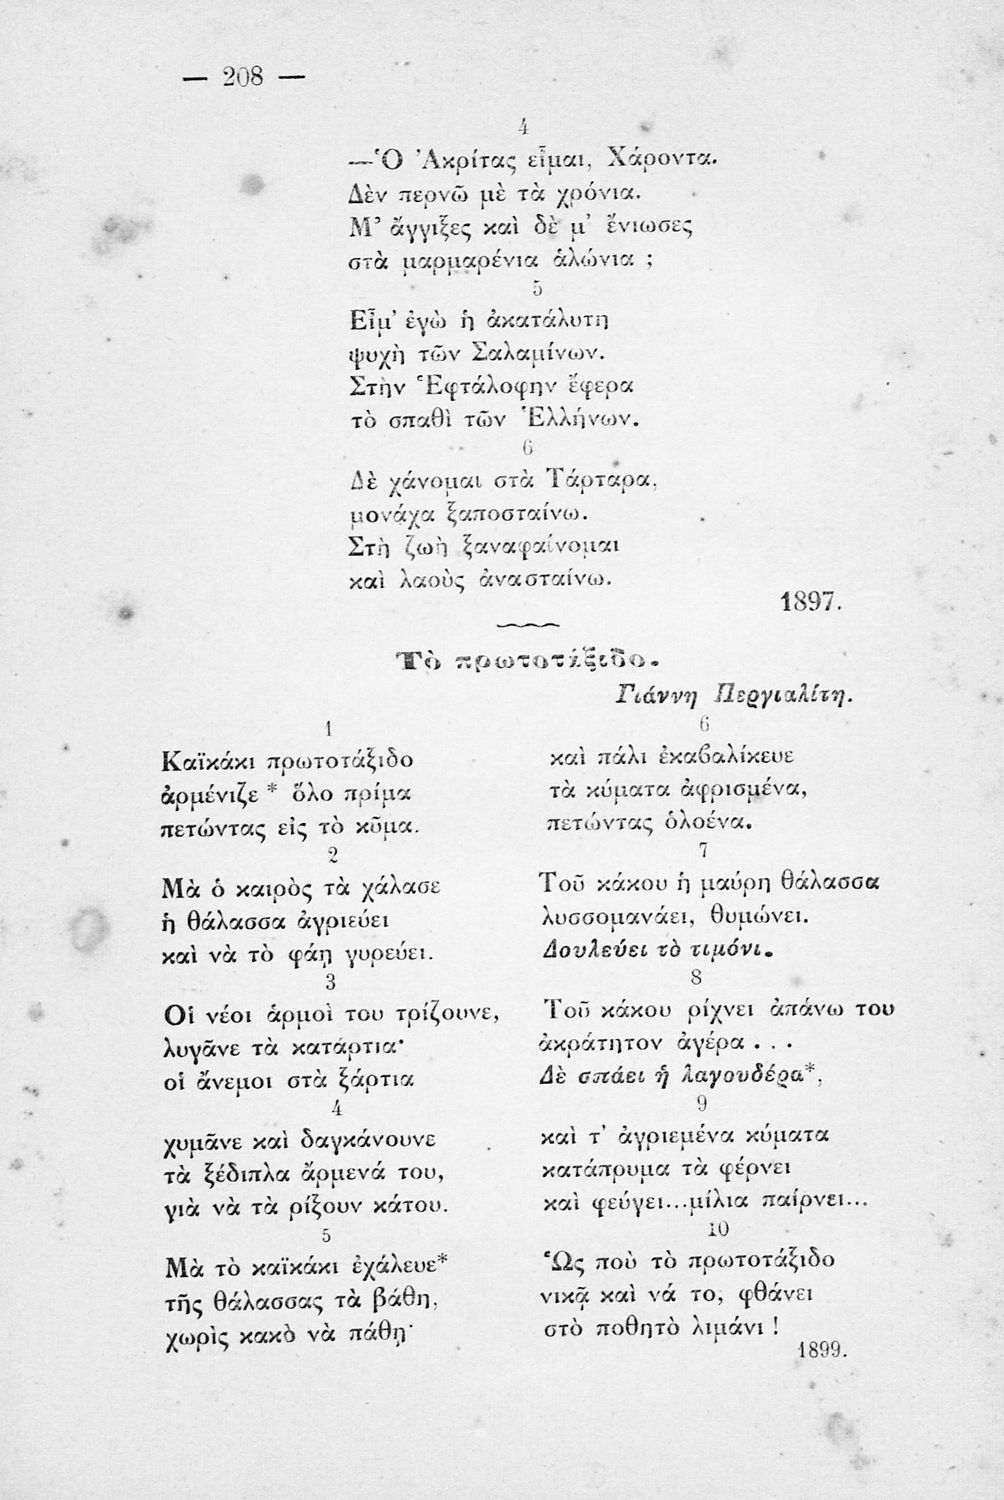 — 208 —
4
—Ὁ Ἀκρίτας εἶμαι, Χάροντα.
Δὲν περνῶ μὲ τὰ χρόνια.
Μ’ ἄγγιξες καὶ δὲ μ’ ἔνιωσες
στὰ μαρμαρένια ἁλώνια ;
5
Εἶμ’ ἐγὼ ἡ ἀκατάλυτη
ψυχὴ τῶν Σαλαμίνων.
Στὴν Ἑφτάλοφην ἔφερα
τὸ σπαθὶ τῶν Ἑλλήνων.
6
Δὲ χάνομαι στὰ Τάρταρα,
μονάχα ξαποσταίνω.
Στὴ ζωὴ ξαναφαίνομαι
καὶ λαοὺς ἀνασταίνω.
1897.
Τὸ πρωτοτάξιδο.
Γιάννη Περγιαλίτη.
1
Καϊκάκι πρωτοτάξιδο
ἀρμένιζε * ὅλο πρίμα
πετώντας εἰς τὸ κῦμα.
2
Μὰ ὁ καιρὸς τὰ χάλασε
ἡ θάλασσα ἀγριεύει
καὶ νὰ τὸ φάῃ γυρεύει.
3
Οἱ νέοι ἁρμοὶ του τρίζουνε,
λυγᾶνε τὰ κατάρτια·
οἱ ἄνεμοι στὰ ξάρτια
4
χυμᾶνε καὶ δαγκάνουνε
τὰ ξέδιπλα ἄρμενά του,
γιὰ νὰ τὰ ρίξουν κάτου.
5
Μὰ τὸ καϊκάκι ἐχάλευε*
τῆς θάλασσας τὰ βάθη,
χωρὶς κακὸ νὰ πάθῃ·
6
καὶ πάλι ἐκαβαλίκευε
τὰ κύματα ἀφρισμένα,
πετώντας ὁλοένα.
7
Τοῦ κάκου ἡ μαύρη θάλασσα
λυσσομανάει, θυμώνει.
Δουλεύει τὸ τιμόνι.
8
Τοῦ κάκου ρίχνει ἀπάνω του
ἀκράτητον ἀγέρα . . .
Δὲ σπάει ἡ λαγουδέρα*,
9
καὶ τ’ ἀγριεμένα κύματα
κατάπρυμα τὰ φέρνει
καὶ φεύγει...μίλια παίρνει...
10
Ὡς ποὺ τὸ πρωτοτάξιδο
νικᾷ καὶ νά το, φθάνει
στὸ ποθητὸ λιμάνι !
1899.